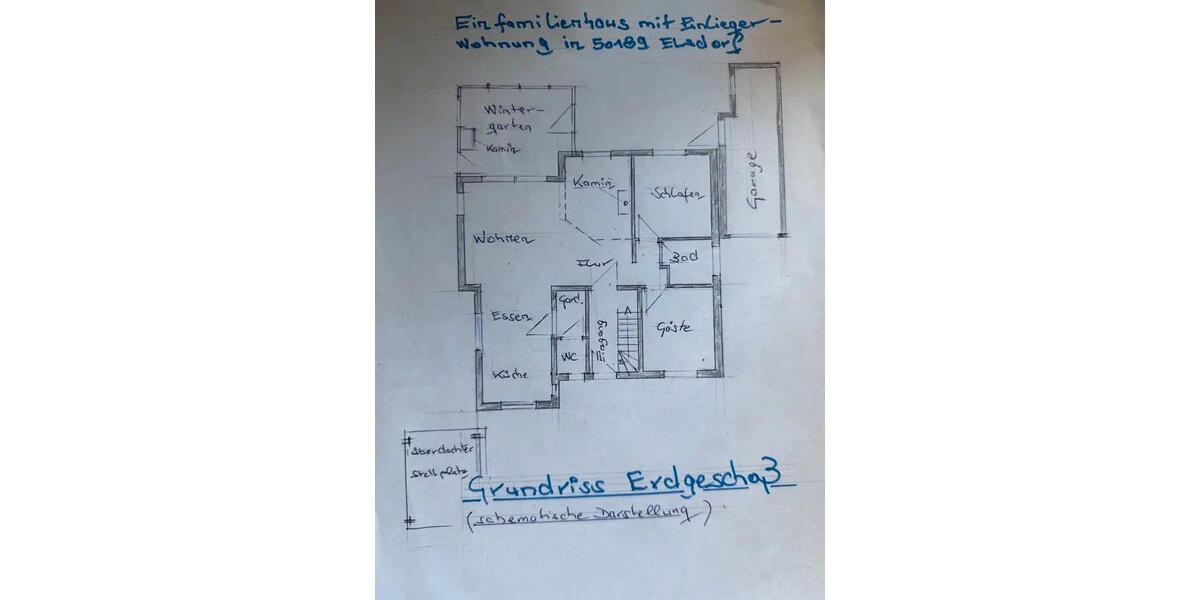 Einfamilienhaus mit Einlieger-
Wohnung in 50189 Elsdorf
Winter-
garten
Kamin
Kamin
Schlafen
Garage
Wohnen
Flur
Bad
Gard.
Essen
Eingang
Gäste
WC
Küche
überdachter
Stellplatz
Grundriss Erdgeschoß
(schematische Darstellung)